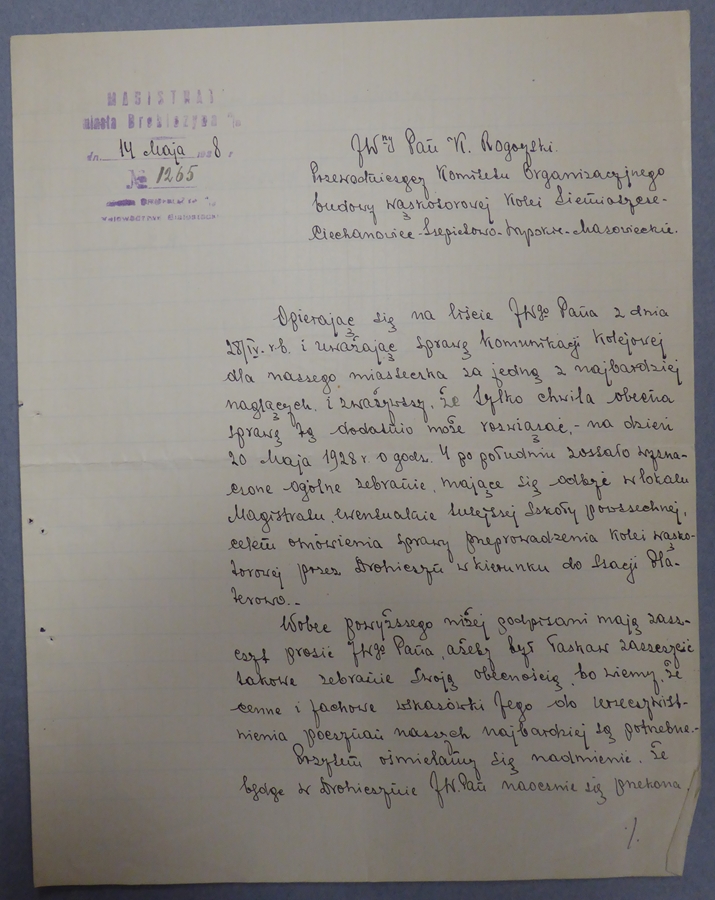 MAGISTRAT
miasta Drohiczyna n/B
dn. 14 Maja 1928 r
№ 1265
województwo Białostockie
JWny Pan K. Rogoyski.
Przewodniczący Komitetu Organizacyjnego
budowy wąskotorowej Kolei Siemiatycze-
Ciechanowiec-Szepietowo-Wysokie-Mazowieckie.
Opierając się na liście JWgo Pana z dnia
28/IV. r.b. i uważając sprawę komunikacji Kolejowej
dla naszego miasteczka za jedną z najbardziej
naglących i zważywszy, że tylko chwila obecna
sprawę tą dodatnio może rozwiązać,- na dzień
20 Maja 1928 r. o godz. 4 po południu zostało wyzna-
czone ogólne zebranie, mające się odbyć w lokalu
Magistratu, ewentualnie tutejszej Szkoły powszechnej,
celem omówienia sprawy przeprowadzenia Kolei wąsko-
torowej przez Drohiczyn w kierunku do Stacji Pla-
terowo.-
Wobec powyższego niżej podpisani mają zasz-
czyt prosić JWgo Pana, ażeby był łaskaw zaszczycić
takowe zebranie Swoją obecnością, bo wiemy, że
cenne i fachowe wskazówki Jego do urzeczywist-
nienia poczynań naszych najbardziej są potrzebne.-
Przytem ośmielamy się nadmienić, że
będąc w Drohiczynie JW.Pan naocznie się przekona
./.